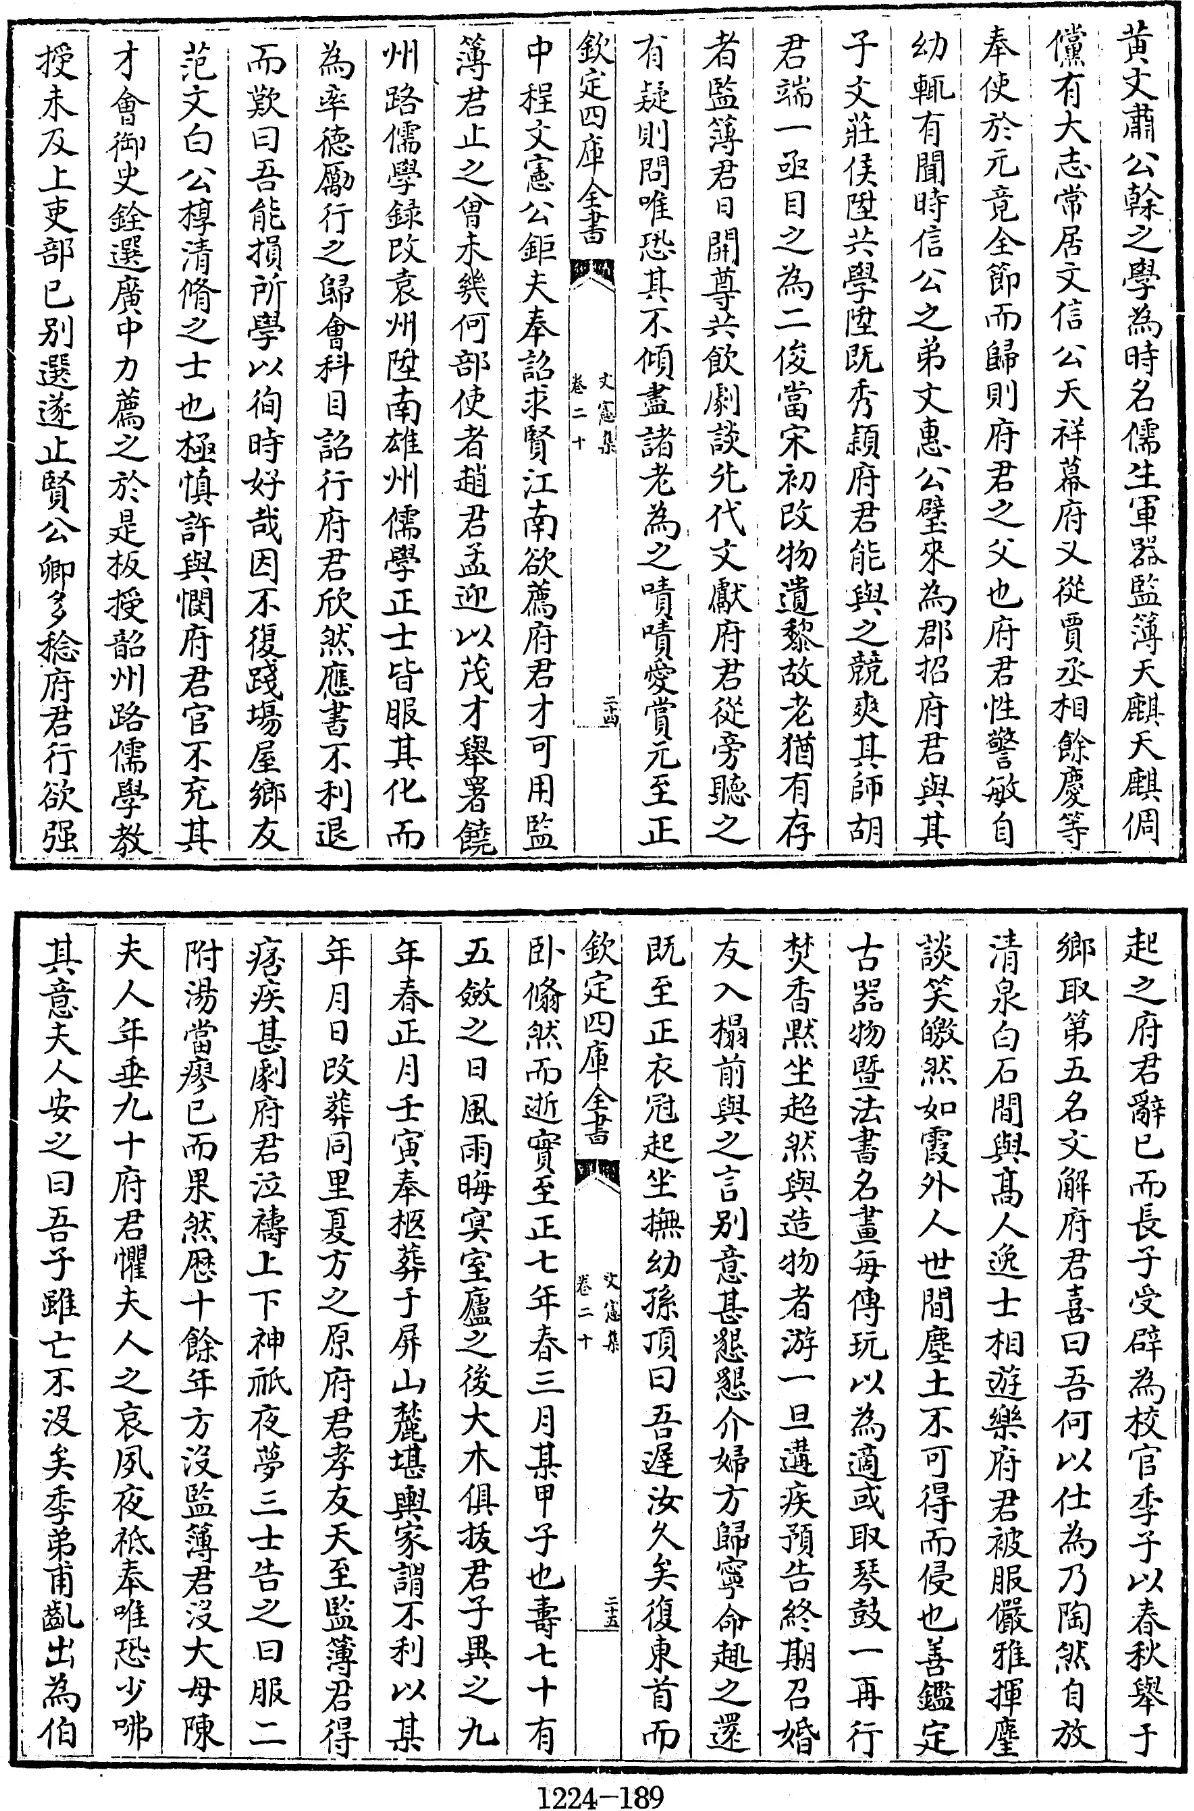 黄文肅公榦之學為時名儒生軍器監簿天麒天麒倜
儻有大志常居文信公天祥幕府又從賈丞相餘慶等
奉使於元竟全節而歸則府君之父也府君性警敏自
幼輒有聞時信公之弟文惠公璧來為郡招府君與其
子文莊侯陞共學陞既秀穎府君能與之競爽其師胡
君端一亟目之為二俊當宋初改物遺黎故老猶有存
者監簿君日開尊共飲劇談先代文獻府君從旁聽之
有疑則問唯恐其不傾盡諸老為之嘖嘖愛賞元至正
欽定四庫全書
文憲集
卷二十
二十四
中程文憲公鉅夫奉詔求賢江南欲薦府君才可用監
簿君止之曾未幾何部使者趙君孟迎以茂才舉署饒
州路儒學録改袁州陞南雄州儒學正士皆服其化而
為率德勵行之歸會科目詔行府君欣然應書不利退
而歎曰吾能損所學以徇時好哉因不復踐場屋鄉友
范文白公梈清脩之士也極慎許與憫府君官不充其
才會御史銓選廣中力薦之於是板授韶州路儒學教
授未及上吏部已别選遂止賢公卿多稔府君行欲强
起之府君辭已而長子受辟為校官季子以春秋舉于
鄉取第五名文解府君喜曰吾何以仕為乃陶然自放
清泉白石間與髙人逸士相遊樂府君被服儼雅揮麈
談笑皦然如霞外人世間塵土不可得而侵也善鑑定
古器物暨法書名畫每傳玩以為適或取琴鼓一再行
焚香默坐超然與造物者游一旦遘疾預告終期召婚
友入榻前與之言别意甚懇懇介婦方歸寧命趣之還
既至正衣冠起坐撫幼孫頂曰吾遲汝久矣復東首而
欽定四庫全書
文憲集
卷二十
二十五
卧翛然而逝實至正七年春三月某甲子也壽七十有
五斂之日風雨晦冥室廬之後大木俱拔君子異之九
年春正月壬寅奉柩葬于屏山麓堪輿家謂不利以某
年月日改葬同里夏方之原府君孝友天至監簿君得
痞疾甚劇府君泣禱上下神祇夜夢三士告之曰服二
附湯當瘳已而果然厯十餘年方沒監簿君沒大母陳
夫人年垂九十府君懼夫人之哀夙夜祗奉唯恐少咈
其意夫人安之曰吾子雖亡不沒矣季弟甫齓出為伯
1224-189